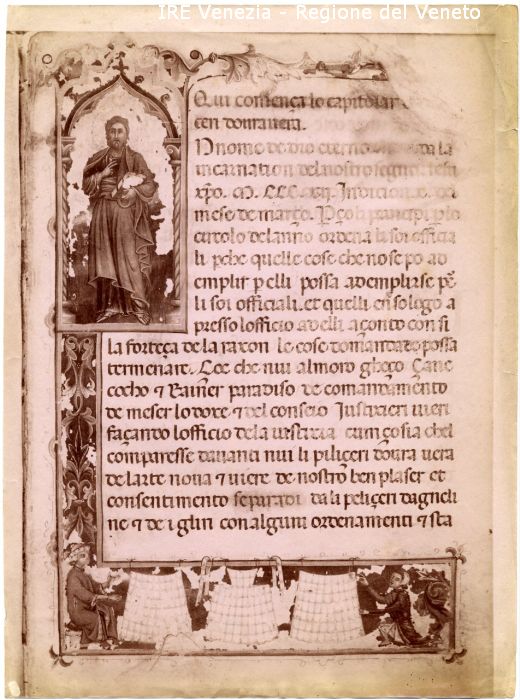 IRE Venezia - Regione del Veneto
Qui comença lo capitolar
ceri doura vera.
nome de dio eterno da la
incarnation del nostro segnor
xpo. M. CCC. Indicion
mese de março. P çoli principi p lo
circolo delanno ordena li soi officia
li pche quelle cose che no se po ad
emplir p elli possa adempirse pe
li soi officiali. et quelli en so logo a
presso lofficio adelli açonto con si
la forteça de la raxon le cose domandate possa
termenare. Coe che nui almoro
cocho & Rainer paradiso de comandamento
de meser lo doxe & del conseio Iusticieri vieri
façando lofficio dela iusticia cum ço sia chel
comparesse davanti nui li piliçeri doura vera
de larte noua & viere de nostro ben plaser et
consentimento separadi da li peliçeri dagneli
ne & de i glin con alguni ordenamenti & sta